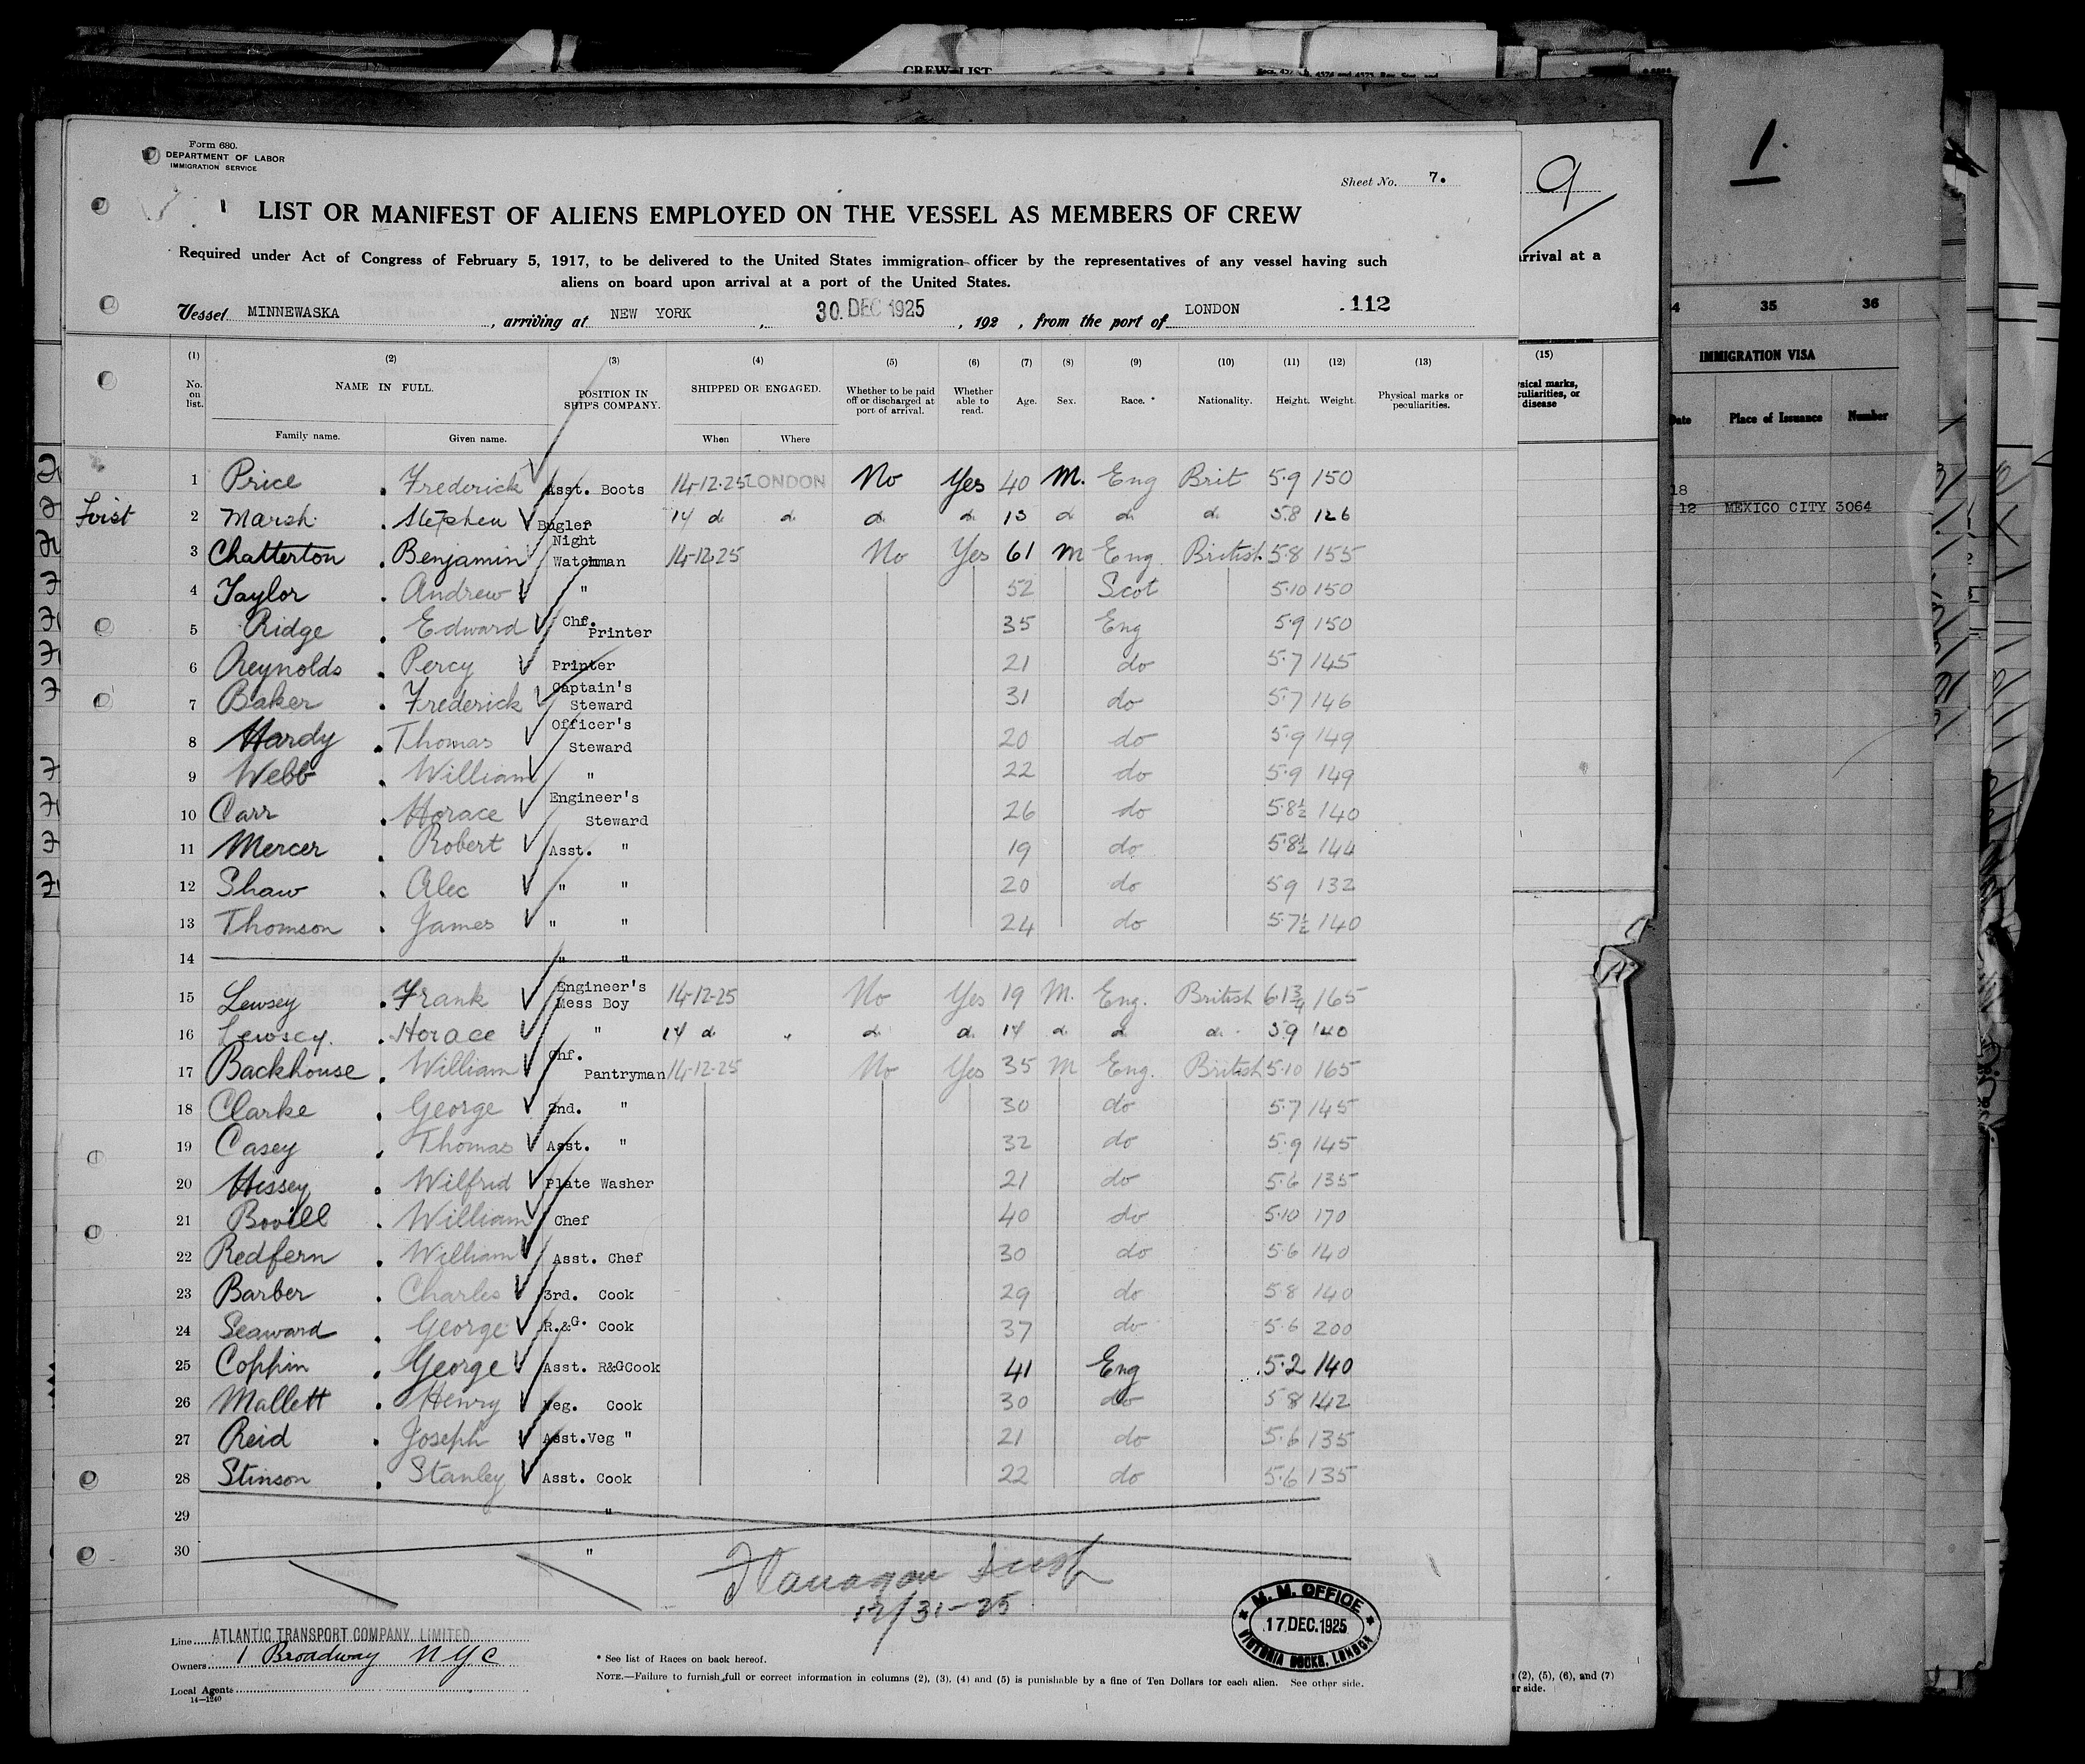 CREW LIST
Form 680.
DEPARTMENT OF LABOR
IMMIGRATION SERVICE
Sheet No. 7.
LIST OR MANIFEST OF ALIENS EMPLOYED ON THE VESSEL AS MEMBERS OF CREW
Required under Act of Congress of February 5, 1917, to be delivered to the United States immigration officer by the representatives of any vessel having such
aliens on board upon arrival at a port of the United States.
Vessel MINNEWASKA, arriving at NEW YORK, 30 DEC 1925, 192 , from the port of LONDON 112
(1) (2) (3) (4) (5) (6) (7) (8) (9) (10) (11) (12) (13)
No. on list. NAME IN FULL. POSITION IN SHIP'S COMPANY. SHIPPED OR ENGAGED. Whether to be paid off or discharged at port of arrival. Whether able to read. Age. Sex. Race. * Nationality. Height. Weight. Physical marks or peculiarities.
Family name. Given name. When Where
1 Price Frederick Asst. Boots 14-12-25 LONDON No Yes 40 M. Eng Brit 5.9 150
2 Marsh Stephen Bugler 14 d d d d d d d 5.8 126
3 Chatterton Benjamin Night Watchman 14-12-25 No Yes 61 M Eng. British 5.8 155
4 Taylor Andrew " 52 Scot 5.10 150
5 Ridge Edward Chf. Printer 35 Eng 5.9 150
6 Reynolds Percy Printer 21 do 5.7 145
7 Baker Frederick Captain's Steward 31 do 5.7 146
8 Hardy Thomas Officer's Steward 20 do 5.9 149
9 Webb William " 22 do 5.9 149
10 Carr Horace Engineer's Steward 26 do 5.8½ 140
11 Mercer Robert Asst. " 19 do 5.8½ 144
12 Shaw Alec " " 20 do 5.9 132
13 Thomson James " " 24 do 5.7½ 140
14 " "
15 Lewsey Frank Engineer's Mess Boy 14-12-25 No Yes 19 M. Eng. British 6.1¾ 165
16 Lewsey. Horace " 14 d " d d 17 d d d 5.9 140
17 Backhouse William Chf. Pantryman 14-12-25 No Yes 35 M Eng. British 5.10 165
18 Clarke George 2nd. " 30 do 5.7 145
19 Casey Thomas Asst. " 32 do 5.9 145
20 Hissey Wilfrid Plate Washer 21 do 5.6 135
21 Bovill William Chef 40 do 5.10 170
22 Redfern William Asst. Chef 30 do 5.6 140
23 Barber Charles 3rd. Cook 29 do 5.8 140
24 Seaward George R.&G. Cook 37 do 5.6 200
25 Coppin George Asst. R&GCook 41 Eng 5.2 140
26 Mallett Henry Veg. Cook 30 do 5.8 142
27 Reid Joseph Asst.Veg " 21 do 5.6 135
28 Stinson Stanley Asst. Cook 22 do 5.6 135
29 "
30 "
Flanagan
12/31-25
M. M. OFFICE
17 DEC. 1925
VICTORIA DOCKS, LONDON
Line ATLANTIC TRANSPORT COMPANY, LIMITED
Owners 1 Broadway N Y C
Local Agents
14—1240
* See list of Races on back hereof.
NOTE.—Failure to furnish full or correct information in columns (2), (3), (4) and (5) is punishable by a fine of Ten Dollars for each alien. See other side.
9
arrival at a
(15)
culiarities, or
disease
(2), (5), (6), and (7)
er side.
1.
35 36
IMMIGRATION VISA
Date Place of Issuance Number
18
12 MEXICO CITY 3064